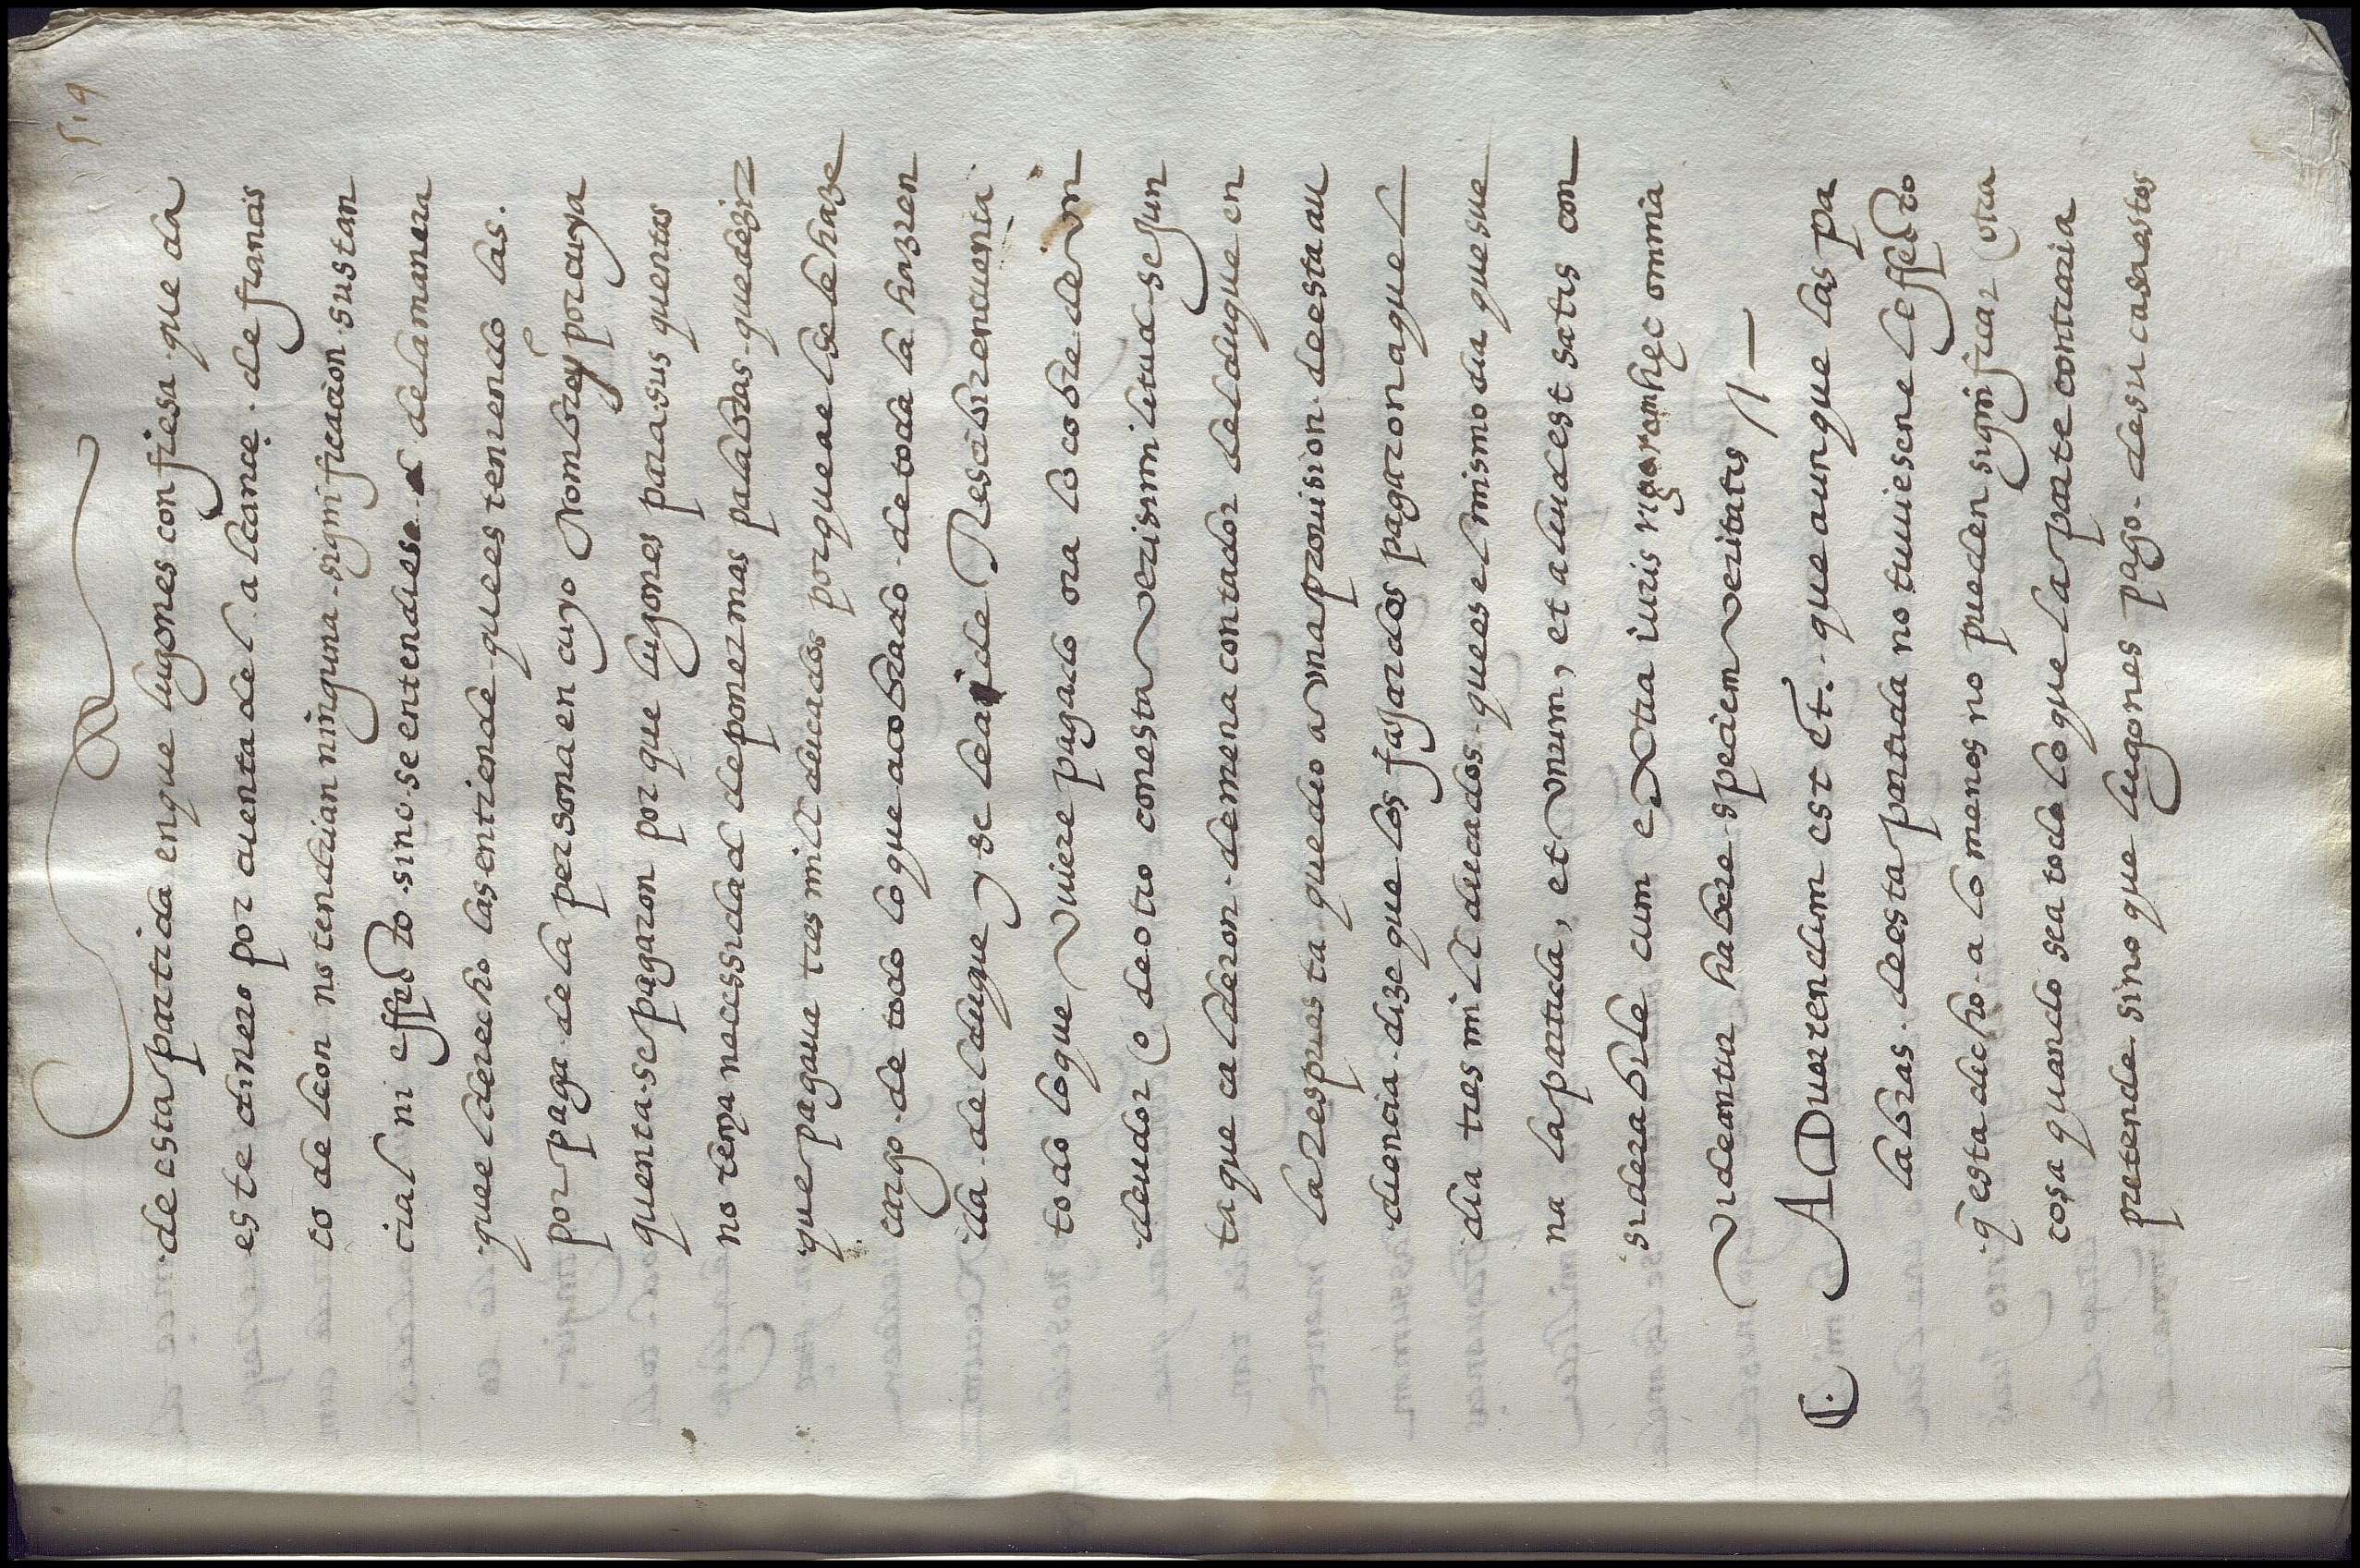 519
de esta partida en que lugones confiesa que da
este dinero por cuenta del alcançe. de françis
co de leon no tendrian ninguna significaçion sustan
cial ni effecto sino se entendiesse de la manera
que el derecho las entiende que es teniendo las.
por paga de la persona en cuyo Nombre y por cuya
quenta se pagaron por que lugones para sus quentas
no tenya necessidad de poner mas palabras que dezir
que pagaua tres mill ducados porque a el se le haze
cargo de todo lo que a cobrado de toda la hazien
da del duque y se le a de Resçibir en cuenta
todo lo que vuiere pagado ora lo cobre de vn
deudor o de otro con esta verisimilitud se Jun
ta que calderon. demena contador del duque en
la respuesta que dio a vna prouision de esta au
diencia dize que los faJardos pagaron aquel
dia tres mill ducados que es el mismo dia que sue
na la partida, et vnum, et aliud est satis con
siderabile cum extra iuris rigorem hęc omnia
videantur habere speciem veritatis //
Aduertendum est et. que aunque las pa
labras. de esta partida no tuuiesen el effecto
q̃ esta dicho a lo menos no pueden significar otra
cosa quando sea todo lo que la parte contraria
pretende sino que lugones pago. de su casa estos